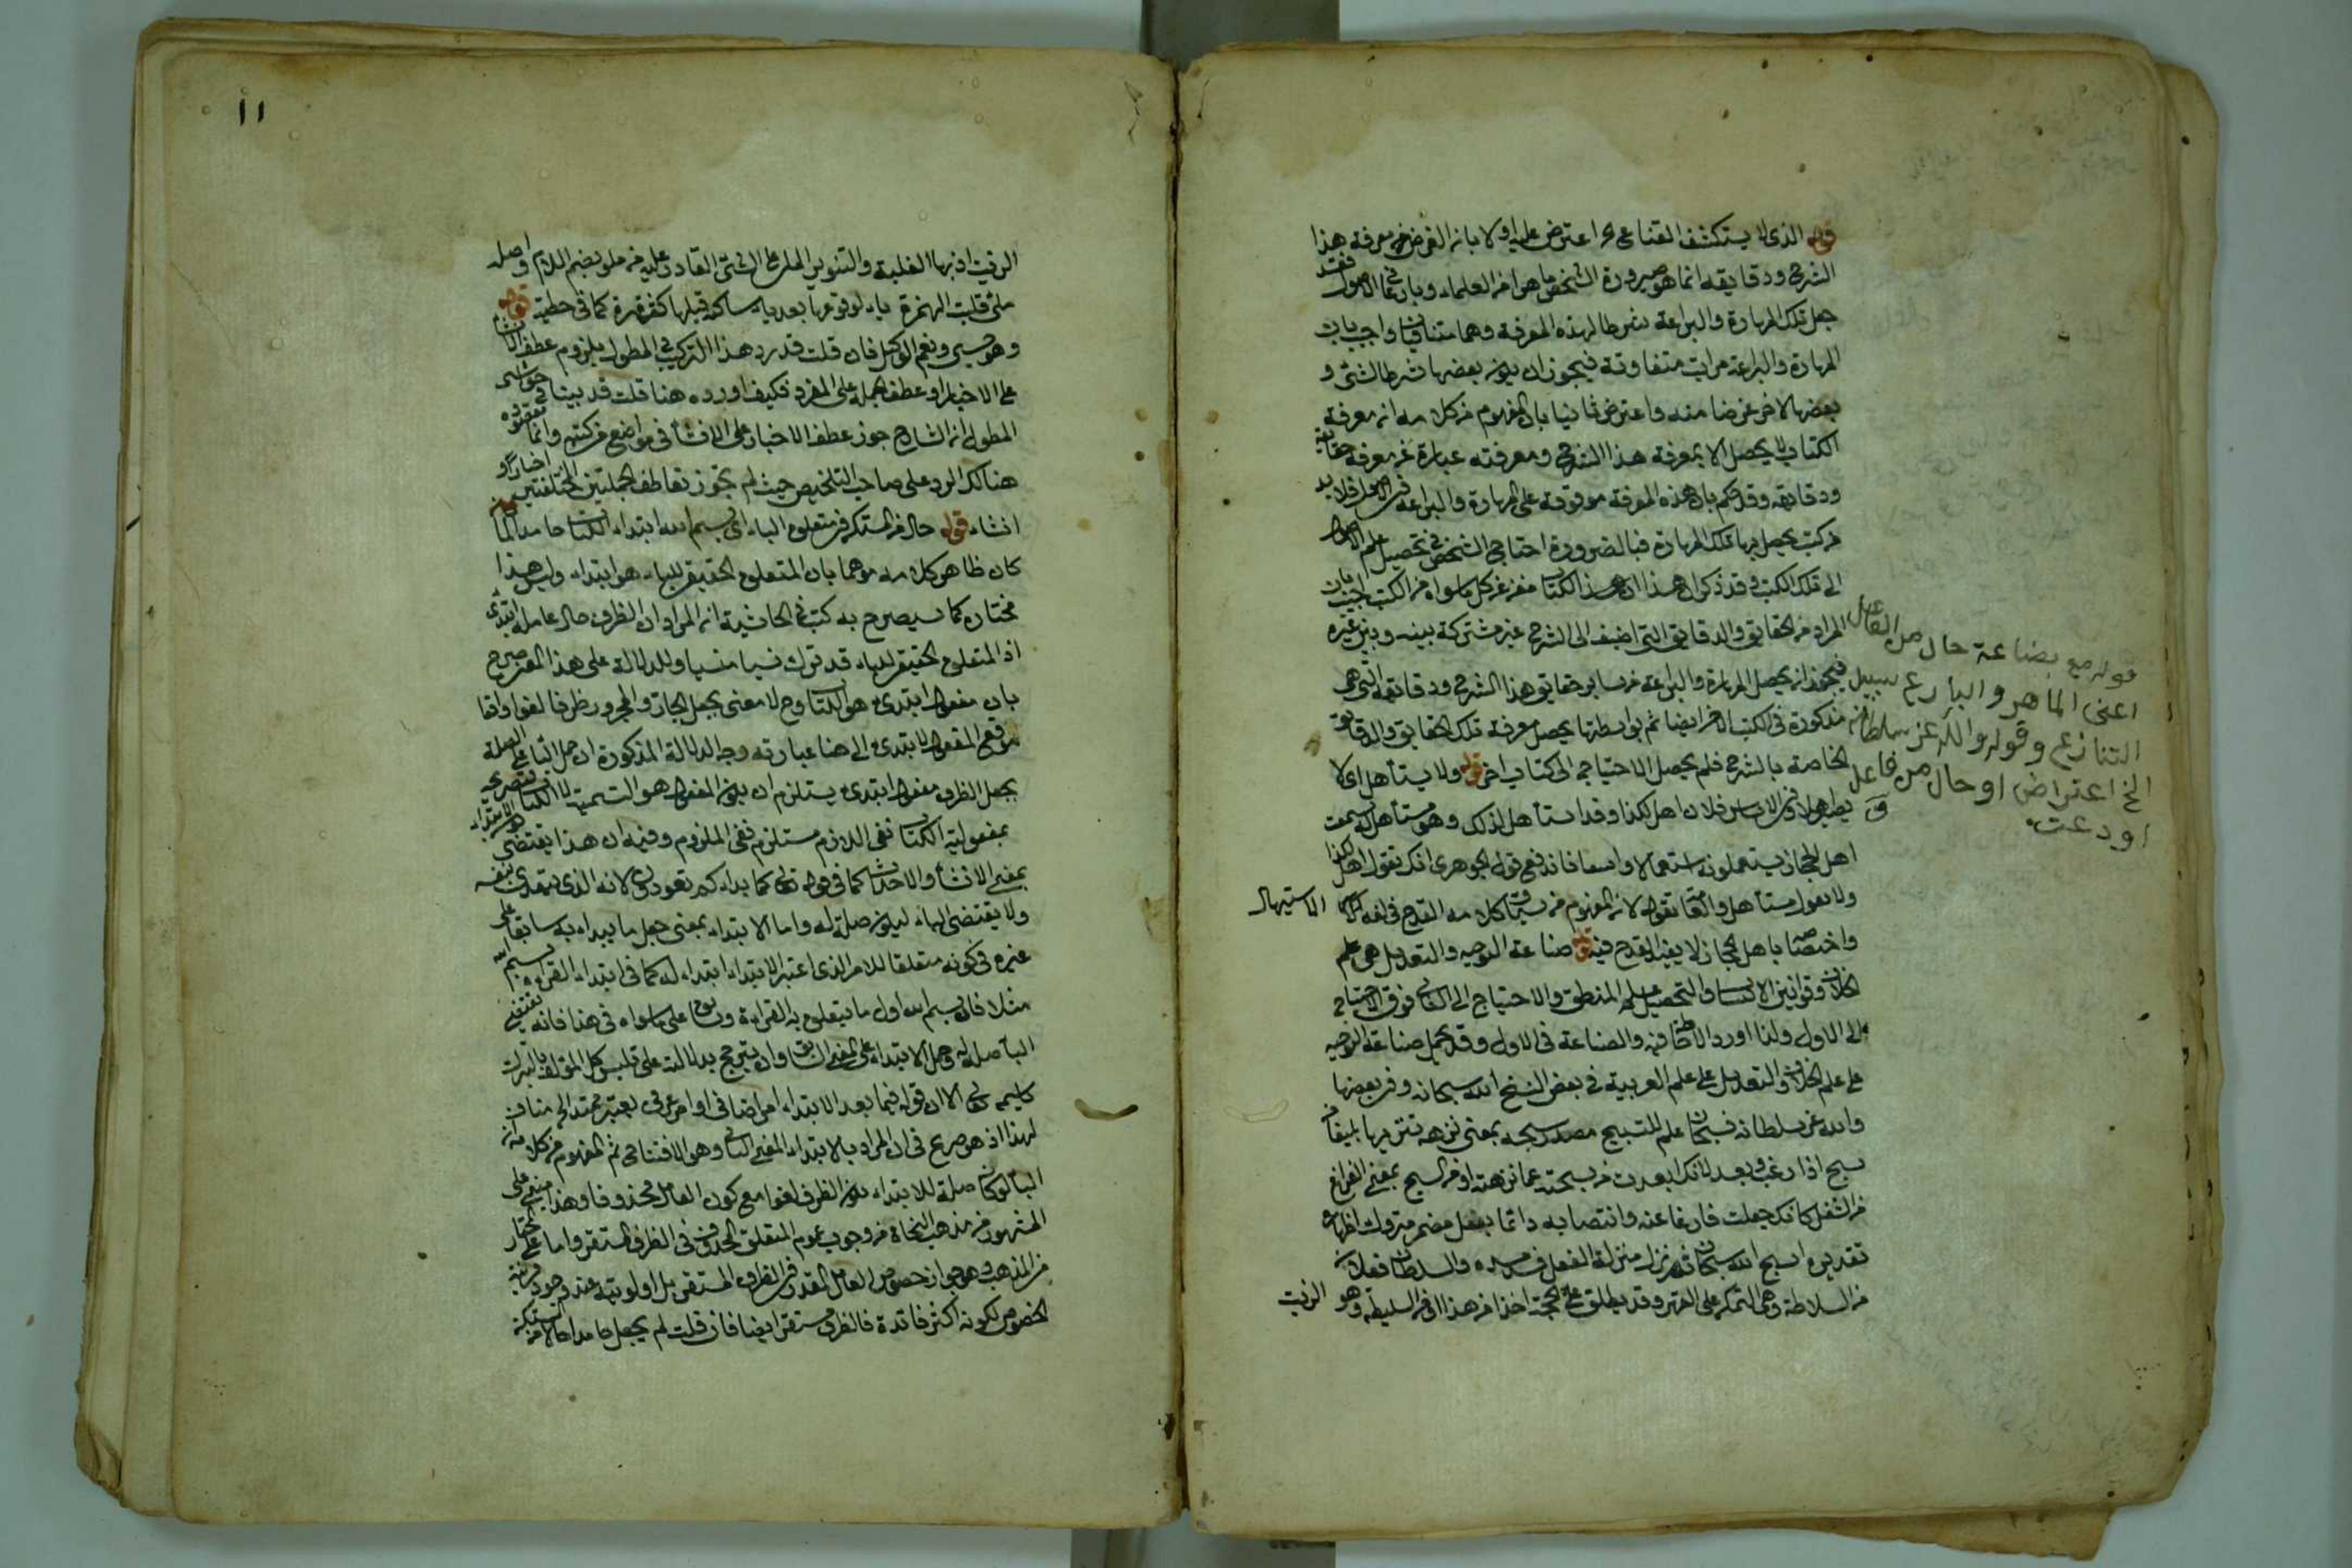 قوله الذي لا يستكشف القناع الخ اعترض عليه اولا بان الغرض من معرفة هذا
الشرح ودقايقه انما هو صيرورة الشخص ماهرا من العلماء وبارعا في الاصول فقد
جعل تلك المهارة والبراعة شرطا لهذه المعرفة وهما متنافيان واجيب بان
المهارة والبراعة مراتب متفاوتة فيجوز ان يكون بعضها شرط الشئ و
بعضها الاخر غرضا منه واعترض ثانيا بان المفهوم من كلامه ان معرفة
الكتاب لا يحصل الا بمعرفة هذا الشرح ومعرفته عبارة عن معرفة حقايقه
ودقايقه وقد حكم بان هذه المعرفة موقوفة على المهارة والبراعة في الاصول فلا بد
من كتب يحصل بها تلك المهارة فبالضرورة احتاج الشخص في تحصيل علم الاصول
الى تلك الكتب وقد ذكر ان هذا الكتاب مغن عن كل ما سواه من الكتب اجيب بان
المراد من الحقايق والدقايق التي اضيف الى الشرح غير مشتركة بينه وبين غيره
فيجوز ان يحصل المهارة والبراعة من ساير حقايق هذا الشرح ودقايقه التي هي
مذكورة في الكتب الاخر ايضا ثم بواسطتها يحصل معرفة تلك الحقايق والدقايق
الخاصة بالشرح فلم يحصل الاحتياج الى كتاب اخر قوله ولا يستأهل اي لا
فلان اهل لكذا وقد استأهل لذلك وهو مستأهل له سمعت
اهل الحجاز يستعملونه استعمالا واسعا فاندفع قول الجوهري انك تقول اهل لكذا
ولا تقول مستأهل
واختصاصه باهل الحجاز لا يفيد القدح فيه قوله صناعة التوجيه والتعديل هي علم
الخلاف وقوانين الاكتساب والتحصيل علم المنطق والاحتياج الى الثاني فوق الاحتياج
الى الاول ولذا اورد الاحاطة فيه والصناعة في الاول وقد يحمل صناعة التوجيه
على علم الخلاف والتعديل على علم العربية في بعض النسخ الله سبحانه وفي بعضها
والله عز سلطانه فسبحان علم للتسبيح مصدر سبحه بمعنى نزهه تنزيها بليغا من
سبح اذا ابعد كانك ابعدت من سبحته عما نزهته او من السبح بمعنى الفراغ
من الشغل كانك جعلت فارغا عنه وانتصابه دائما بفعل مضمر متروك اظهاره
تقديره اسبح الله سبحان ثم نزل منزلة الفعل فسد مسده والسلطان فعلان
من السلاطة وهي التمكن على القهر وقد يطلق على الحجة اخذا من هذا او من السليط وهو الزيت
الاستيهال
قوله مع بضاعة حال من الفاعل
اعني الماهر والبارع سبيل
التنازع وقوله والله عز سلطانه
الخ اعتراض او حال من فاعل
اودعت
الزيت
١١
الزيت اذ بها الغلبة والتنوير الملئ على الشئ القادر عليه من ملو بضم اللام واصله
ملئ قلبت الهمزة ياء لوقوعها بعد ياء ساكنة قبلها كسرة كما في خطية قوله
وهو حسبي ونعم الوكيل فان قلت قد رد هذا التركيب في المطول بلزوم عطف الانشاء
على الاخبار او عطف الجملة على المفرد فكيف اورده هنا قلت قد بينا في حواشي
المطول ان الشارح جوز عطف الاخبار على الانشاء في مواضع من كتبه وانما مقصوده
هنالك الرد على صاحب التلخيص حيث لم يجوز تعاطف الجملتين المختلفتين اخبارا و
انشاء قوله حال من المستكن في متعلق الباء اي بسم الله ابتداء الكتاب حامدا لما
كان ظاهر كلامه موهما بان المتعلق الحقيقي للباء هو ابتداء وليس هذا
مختاره كما سيصرح به كتب في الحاشية ان المراد ان الظرف حال عامله ابتدئ
اذ المتعلق الحقيقي للباء قد ترك نسيا منسيا وللدلالة على هذا المعنى صرح
بان مفعول ابتدئ هو الكتاب وح لا معنى لجعل الجار والمجرور ظرفا لغوا واقعا
موقع المفعول لابتدئ الى هنا عبارته وجه الدلالة المذكورة ان حمل الباء على الصلة
بجعل الظرف مفعول ابتدئ يستلزم ان يكون المفعول هو التسمية لا الكتاب
بمفعولية الكتاب نفى اللازم مستلزم نفى الملزوم وفيه ان هذا يقتضي
بمعنى الانشاء والاحداث كما في قوله تعالى كما بدأكم تعودون لانه الذي يتعدى بنفسه
ولا يقتضي الباء ليكون صلة له واما الابتداء بمعنى جعل ما يبدأ به سابقا على
غيره في كونه متعلقا للامر الذي اعتبر الابتداء ابتداء له كما في ابتداء القراءة بسم الله
مثلا فان بسم الله اول ما يتعلق به القراءة على ما سواه في هذا فانه يقتضي
الباء صلة له وحمل الابتداء على المعنى السابق وان يترجح بدلالته على تلبس كل المؤلف بالتبرك
الا ان قوله فيما بعد الابتداء امر اضافي او امر عرفي يعتبر ممتدا الخ مناف
لهذا اذ هو صريح في ان المراد بالابتداء المعنى الثاني وهو الافتتاح ثم المفهوم من كلامه ان
الباء لو كان صلة للابتداء يكون الظرف لغوا مع كون العامل محذوفا وهذا مبني على
المشهور من مذهب النحاة من وجوب عموم المتعلق المحذوف في الظرف المستقر واما على المختار
من المذهب وهو جواز خصوص العامل المقدر في الظرف المستقر بل اولويته عند وجود قرينة
الخصوص لكونه اكثر فائدة فالظرف مستقر ايضا فان قلت لم يجعل حامدا حالا من المستكن